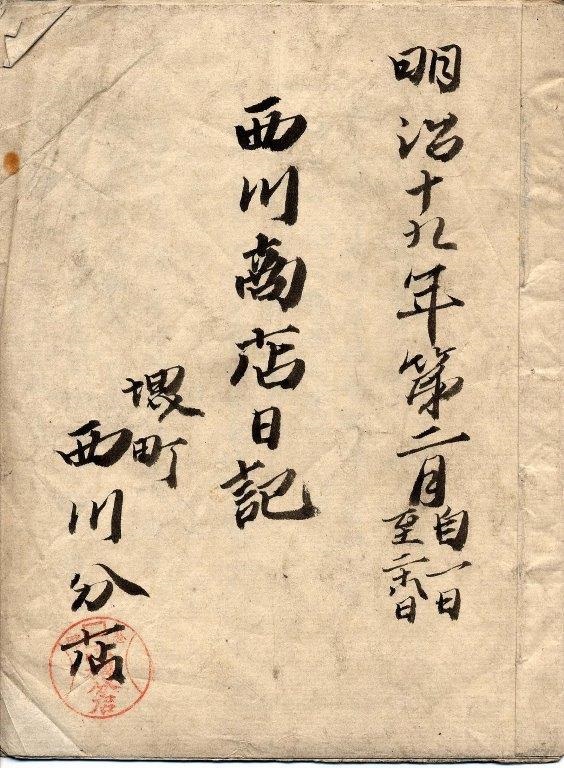 明治十九年第二月自一日
至二十八日
西川商店日記
堺町
西川分店